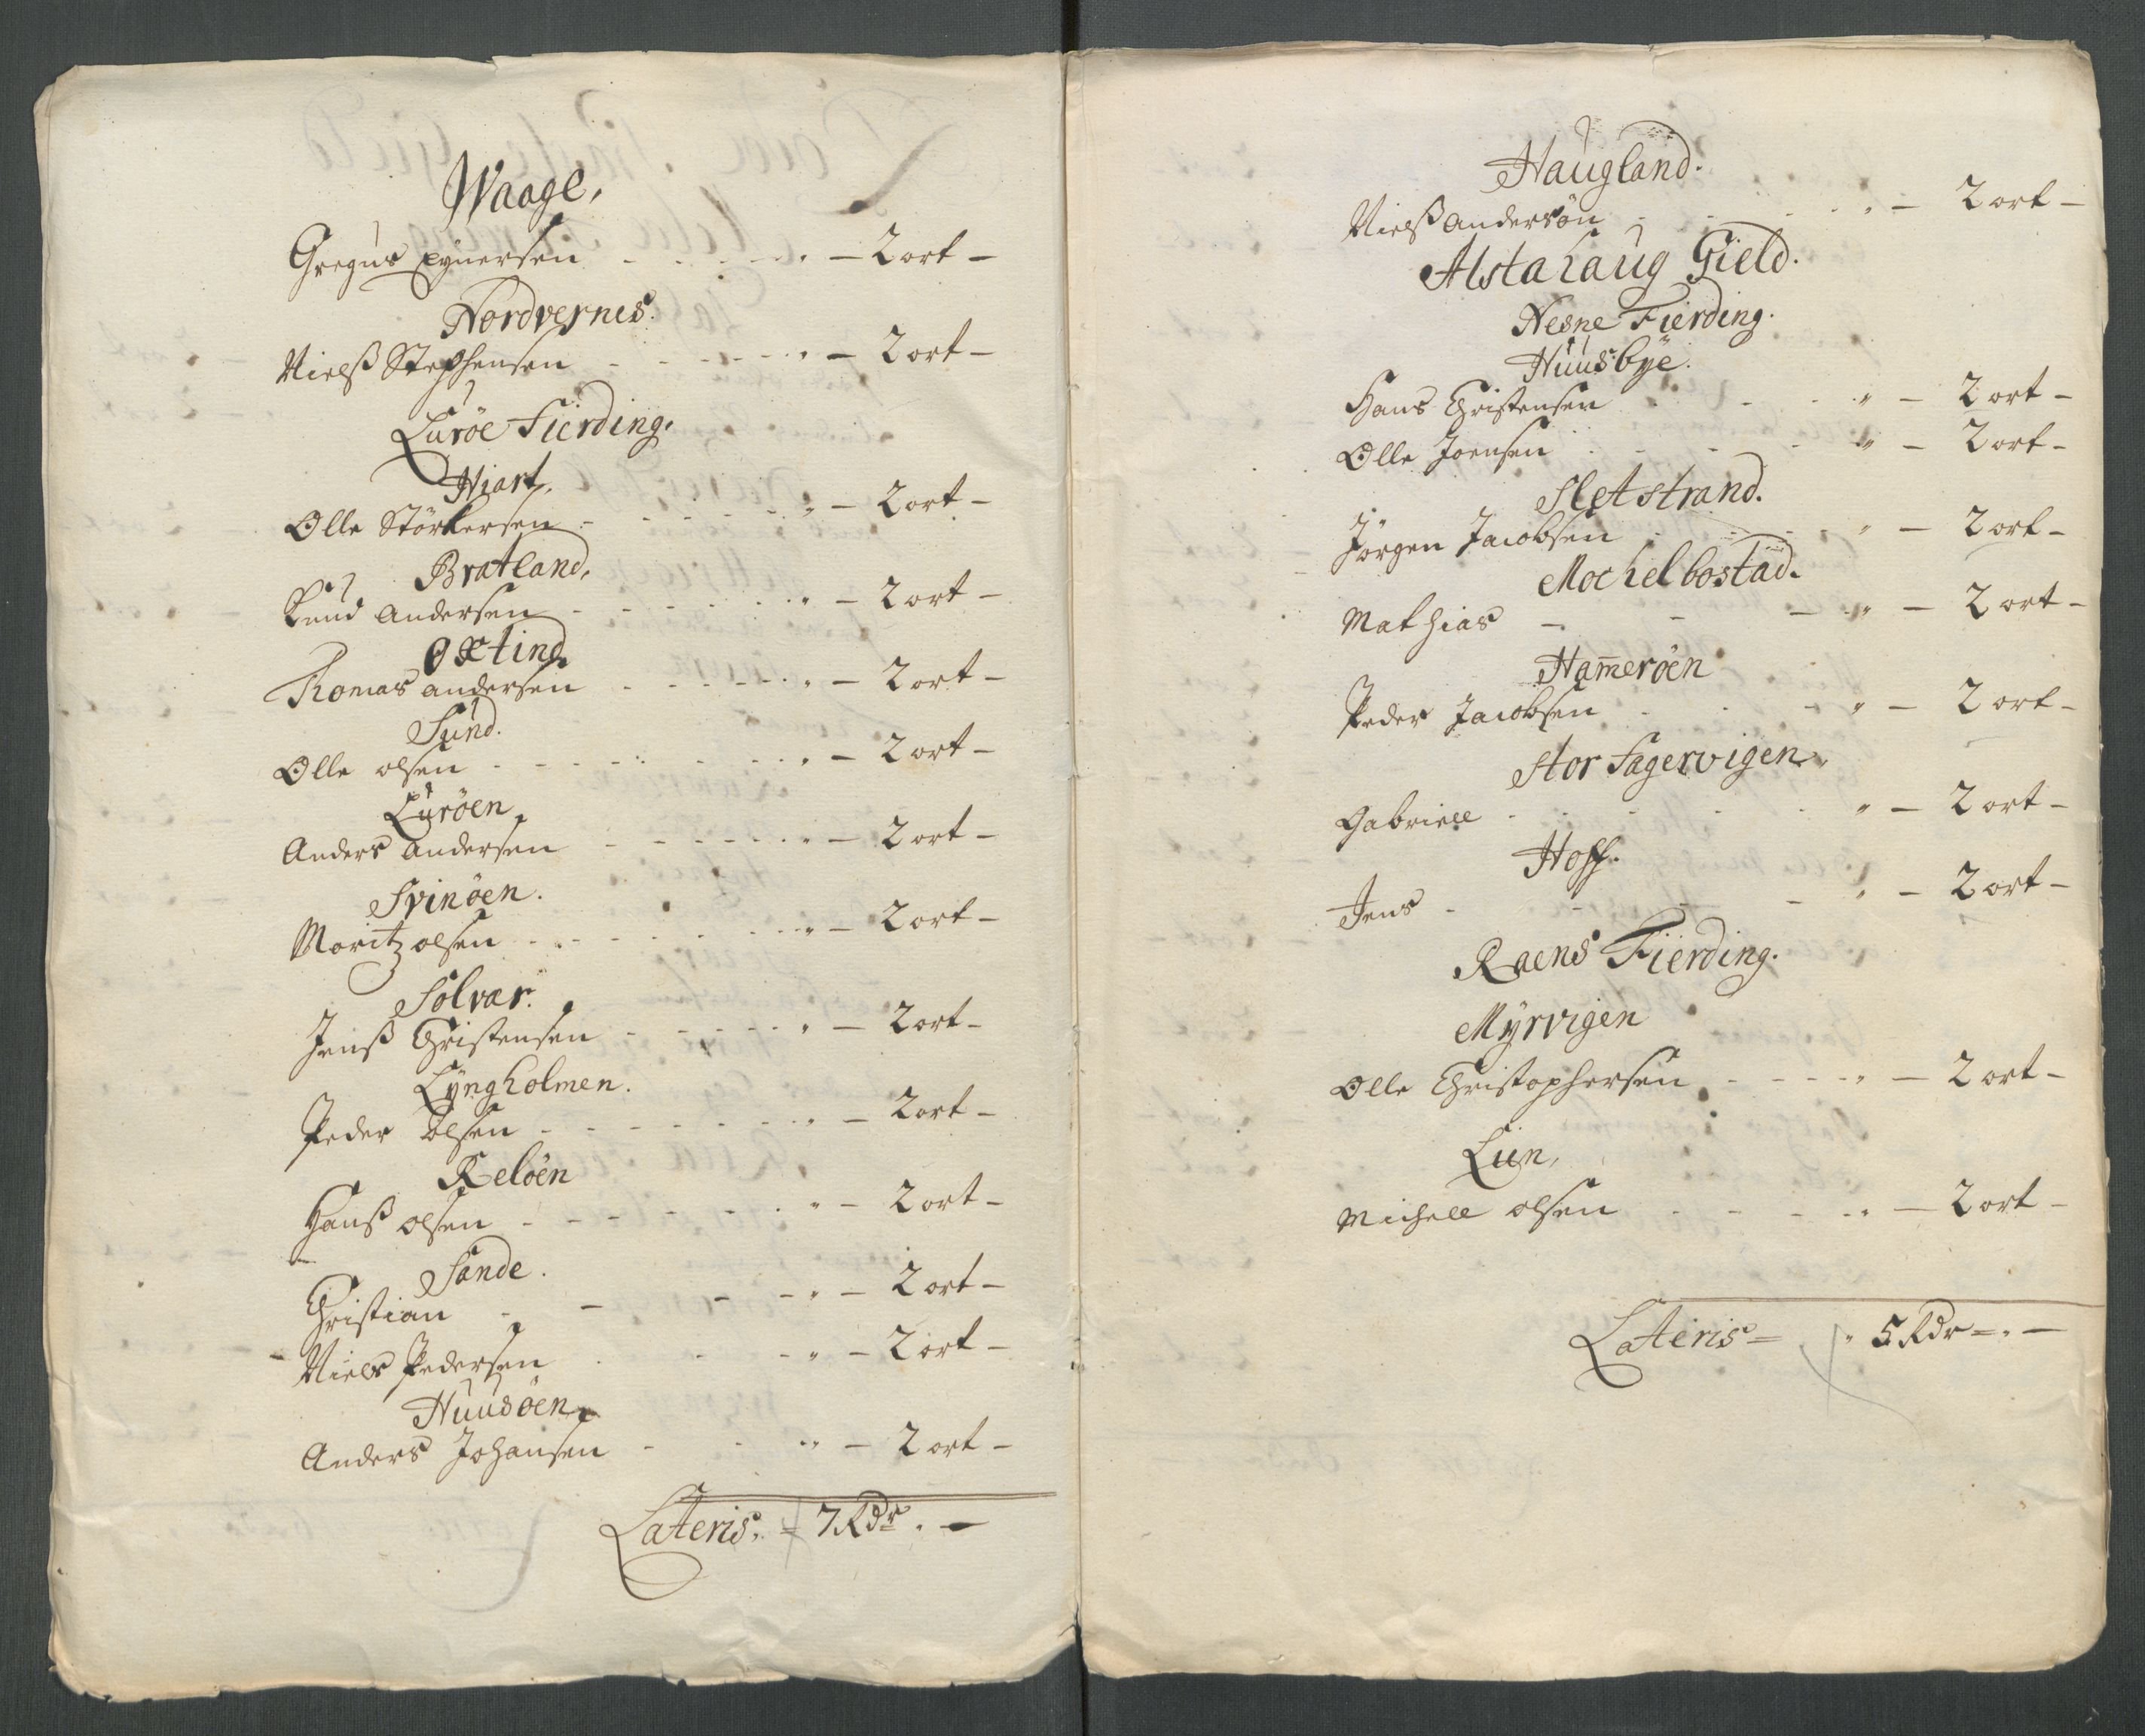 Waage,
Gregus Eynersen - - - - - - " - 2 ort -
Nordvernes.
Nielß Stephensen - - - - - - " - 2 ort -
Lurøe Fierding,
Hiart,
Olle Störkersen - - - - - " - 2 ort -
Bratland,
Knud Andersen - - - - - " - 2 ort -
Oxtind
Thomas andersen - - - - - " - 2 ort -
Sund.
Olle olsen - - - - - - - " - 2 ort -
Luröen
Anders Andersen - - - - - " - 2 ort -
Svinöen.
Moritz olsen - - - - - - " - 2 ort -
Solvær.
Jenß Christensen - - - - - " - 2 ort -
Lÿngholmen.
Peder olsen - - - - - - - " - 2 ort -
Relöen
Hanß olsen - - - - - - " - 2 ort -
Sande.
Christian - - - - " - 2 ort -
Niels Pedersen - - - " - 2 ort -
Huusöen
Anders Johansen - - " - 2 ort -
Lateris. = 7 Rdr. " -
Haugland.
Nielß andersön - - - - " - 2 ort -
Alstahaug Gield.
Nesne Fierding.
Huusbÿe.
Hans Christensen - - - " - 2 ort -
Olle Joensen - - - " - 2 ort -
Sletstrand.
Jörgen Jacobsen - - - " - 2 ort -
Mochelbostad.
Mathias - - - " - 2 ort -
Ham̄eröen
Peder Jacobsen - - - " - 2 ort -
Stor Fagervigen
Gabriell - - - - " - 2 ort -
Hoff.
Jens - - - - " - 2 ort -
Raens Fierding.
Mÿrvigen
Olle Christophersen - - - - " - 2 ort -
Lien,
Michell olsen - - - " - 2 ort -
Lateris = " 5 Rdr = " -